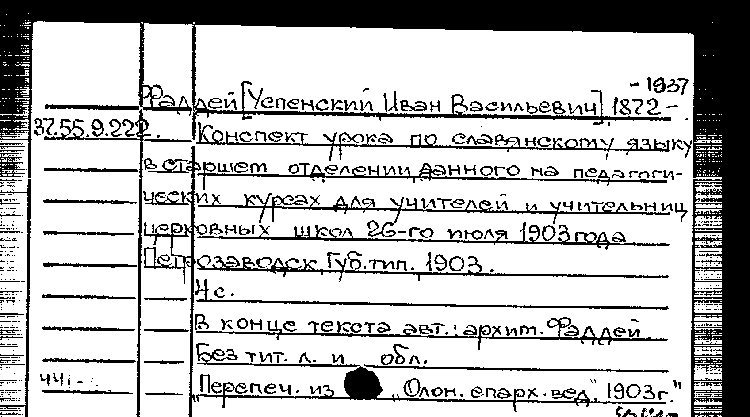 - 1937
Фаддей [Успенский, Иван Васильевич], 1872 -
37.55.9.222. Конспект урока по славянскому языку
в старшем отделении, данного на педагоги-
ческих курсах для учителей и учительниц
церковных школ 26-го июля 1903 года
Петрозаводск, Губ. тип., 1903.
4 с.
В конце текста авт.: архим. Фаддей.
Без тит. л. и обл.
441- „Перепеч. из „Олон. епарх. вед.", 1903г."